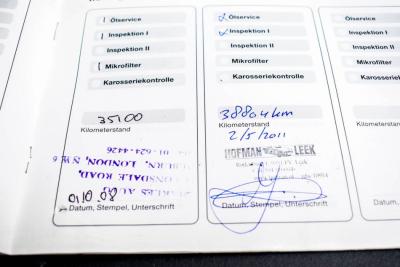 Ölservice
Inspektion I
Inspektion II
Mikrofilter
Karosseriekontrolle
35100
Kilometerstand
01-624-4426
LONDON, N.W.6
ONSDALE ROAD,
01.10.08
Datum, Stempel, Unterschrift
Ölservice
Inspektion I
Inspektion II
Mikrofilter
Karosseriekontrolle
38804km
Kilometerstand
2/5/2011
HOFMAN LEEK
Datum, Stempel, Unterschrift
Ölservice
Inspektion I
Inspektion II
Mikrofilter
Karosseriekon
Kilometerstand
Datum, St